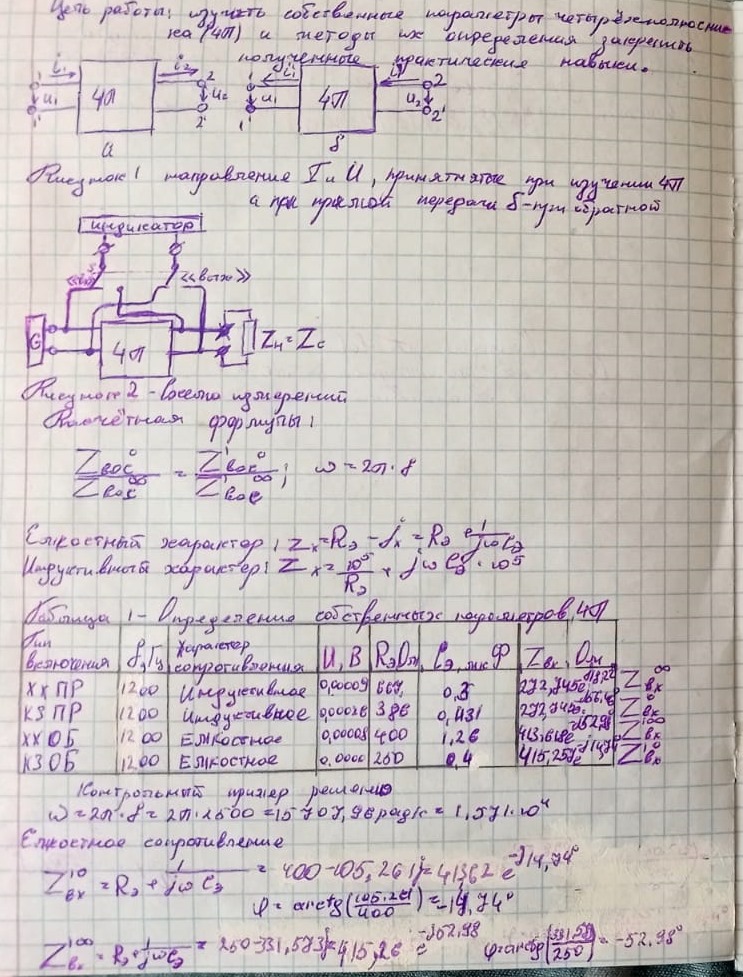 Цель работы: изучить собственные параметры четырёхполюсни
ка (4П) и методы их определения закрепить
полученные практические навыки.
i₁ i₂ 2 i₁ i₂ 2
1 u₁ 4П u₂ u₁ 4П u₂
1' 2' 1' 2'
а б
Рисунок 1 направление I и U, принятые при изучении 4П
а при прямой передачи б-при обратной
индикатор
«вх» «вых»
G 4П Zн = Zc
Рисунок 2 - измерений
Расчётная формулы:
ω = 2π · f
Емкостный характер: Zx = Rэ - jx = Rэ 1/jωCэ
Индуктивный характер: Zx = 10⁵/Rэ + jωCэ · 10⁵
Таблица 1 - Определение собственных параметров 4П
Тип включения f, Гц Характер сопротивления U, В Rэ Ом Cэ, мкФ Zвх, Ом
ХХ ПР 1200 Индуктивное 0,00009 667, 0,3 Zвх∞
КЗ ПР 1200 Индуктивное 0,00026 386 0,431 Zвх⁰
ХХ ОБ 1200 Емкостное 400 1,26 Zвх
КЗ ОБ 1200 Емкостное 0,0000 250 0,4 Zвх
Контрольный пример решения
ω = 2π · f = 2π · 2500 = 15707,96 рад/с = 1,571·10⁴
Емкостное сопротивление
Zвх = Rэ + 1/jωCэ = 400-105,261j = 413,62 e^-j14,74°
φ = arctg(105.261/400) = -14,74°
Zвх = Rэ + 1/jωCэ = 250-331,573j = 415,26 e^-j52.98 φ = arctg(331,573/250) = -52.98°